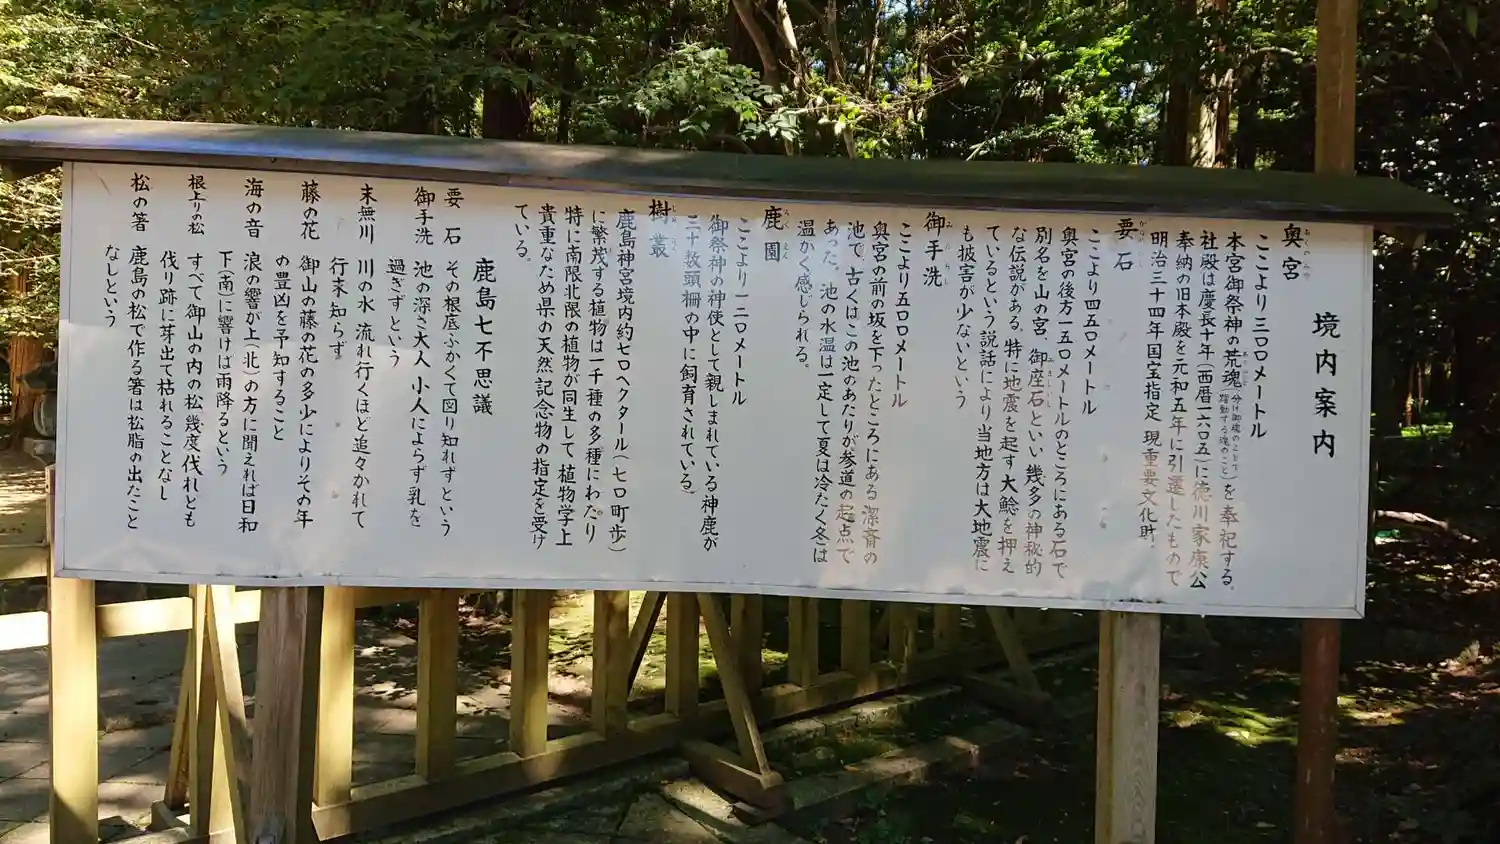 境内案内
奥宮
おくのみや
ここより三〇〇メートル
本宮御祭神の荒魂(分け御魂のことで躍動する魂のこと)を奉祀する。
社殿は慶長十年(西暦一六〇五)に徳川家康公
奉納の旧本殿を元和五年に引遷したもので
明治三十四年国宝指定 現重要文化財。
要石
かなめいし
ここより四五〇メートル
奥宮の後方一五〇メートルのところにある石で
別名を山の宮、御座石といい幾多の神秘的
な伝説がある。特に地震を起す大鯰を押え
ているという説話により当地方は大地震に
も披害が少ないという
御手洗
みたらし
ここより五〇〇メートル
奥宮の前の坂を下ったところにある潔斎の
池で、古くはこの池のあたりが参道の起点で
あった。池の水温は一定して夏は冷たく冬は
温かく感じられる。
鹿園
ろくえん
ここより一二〇メートル
御祭神の神使として親しまれている神鹿が
三十数頭柵の中に飼育されている。
樹叢
じゅそう
鹿島神宮境内約七〇ヘクタール(七〇町歩)
に繁茂する植物は一千種の多種にわたり
特に南限北限の植物が同生して植物学上
貴重なため県の天然記念物の指定を受け
ている。
鹿島七不思議
要石 その根底ふかくて図り知れずという
御手洗 池の深さ大人 小人によらず乳を
過ぎずという
末無川 川の水 流れ行くほど追々かれて
行末知らず
藤の花 御山の藤の花の多少によりその年
の豊凶を予知すること
海の音 浪の響が上(北)の方に聞えれば日和
下(南)に響けば雨降るという
根上りの松 すべて御山の内の松幾度伐れども
伐り跡に芽出て枯れることなし
松の箸 鹿島の松で作る箸は松脂の出たこと
なしという